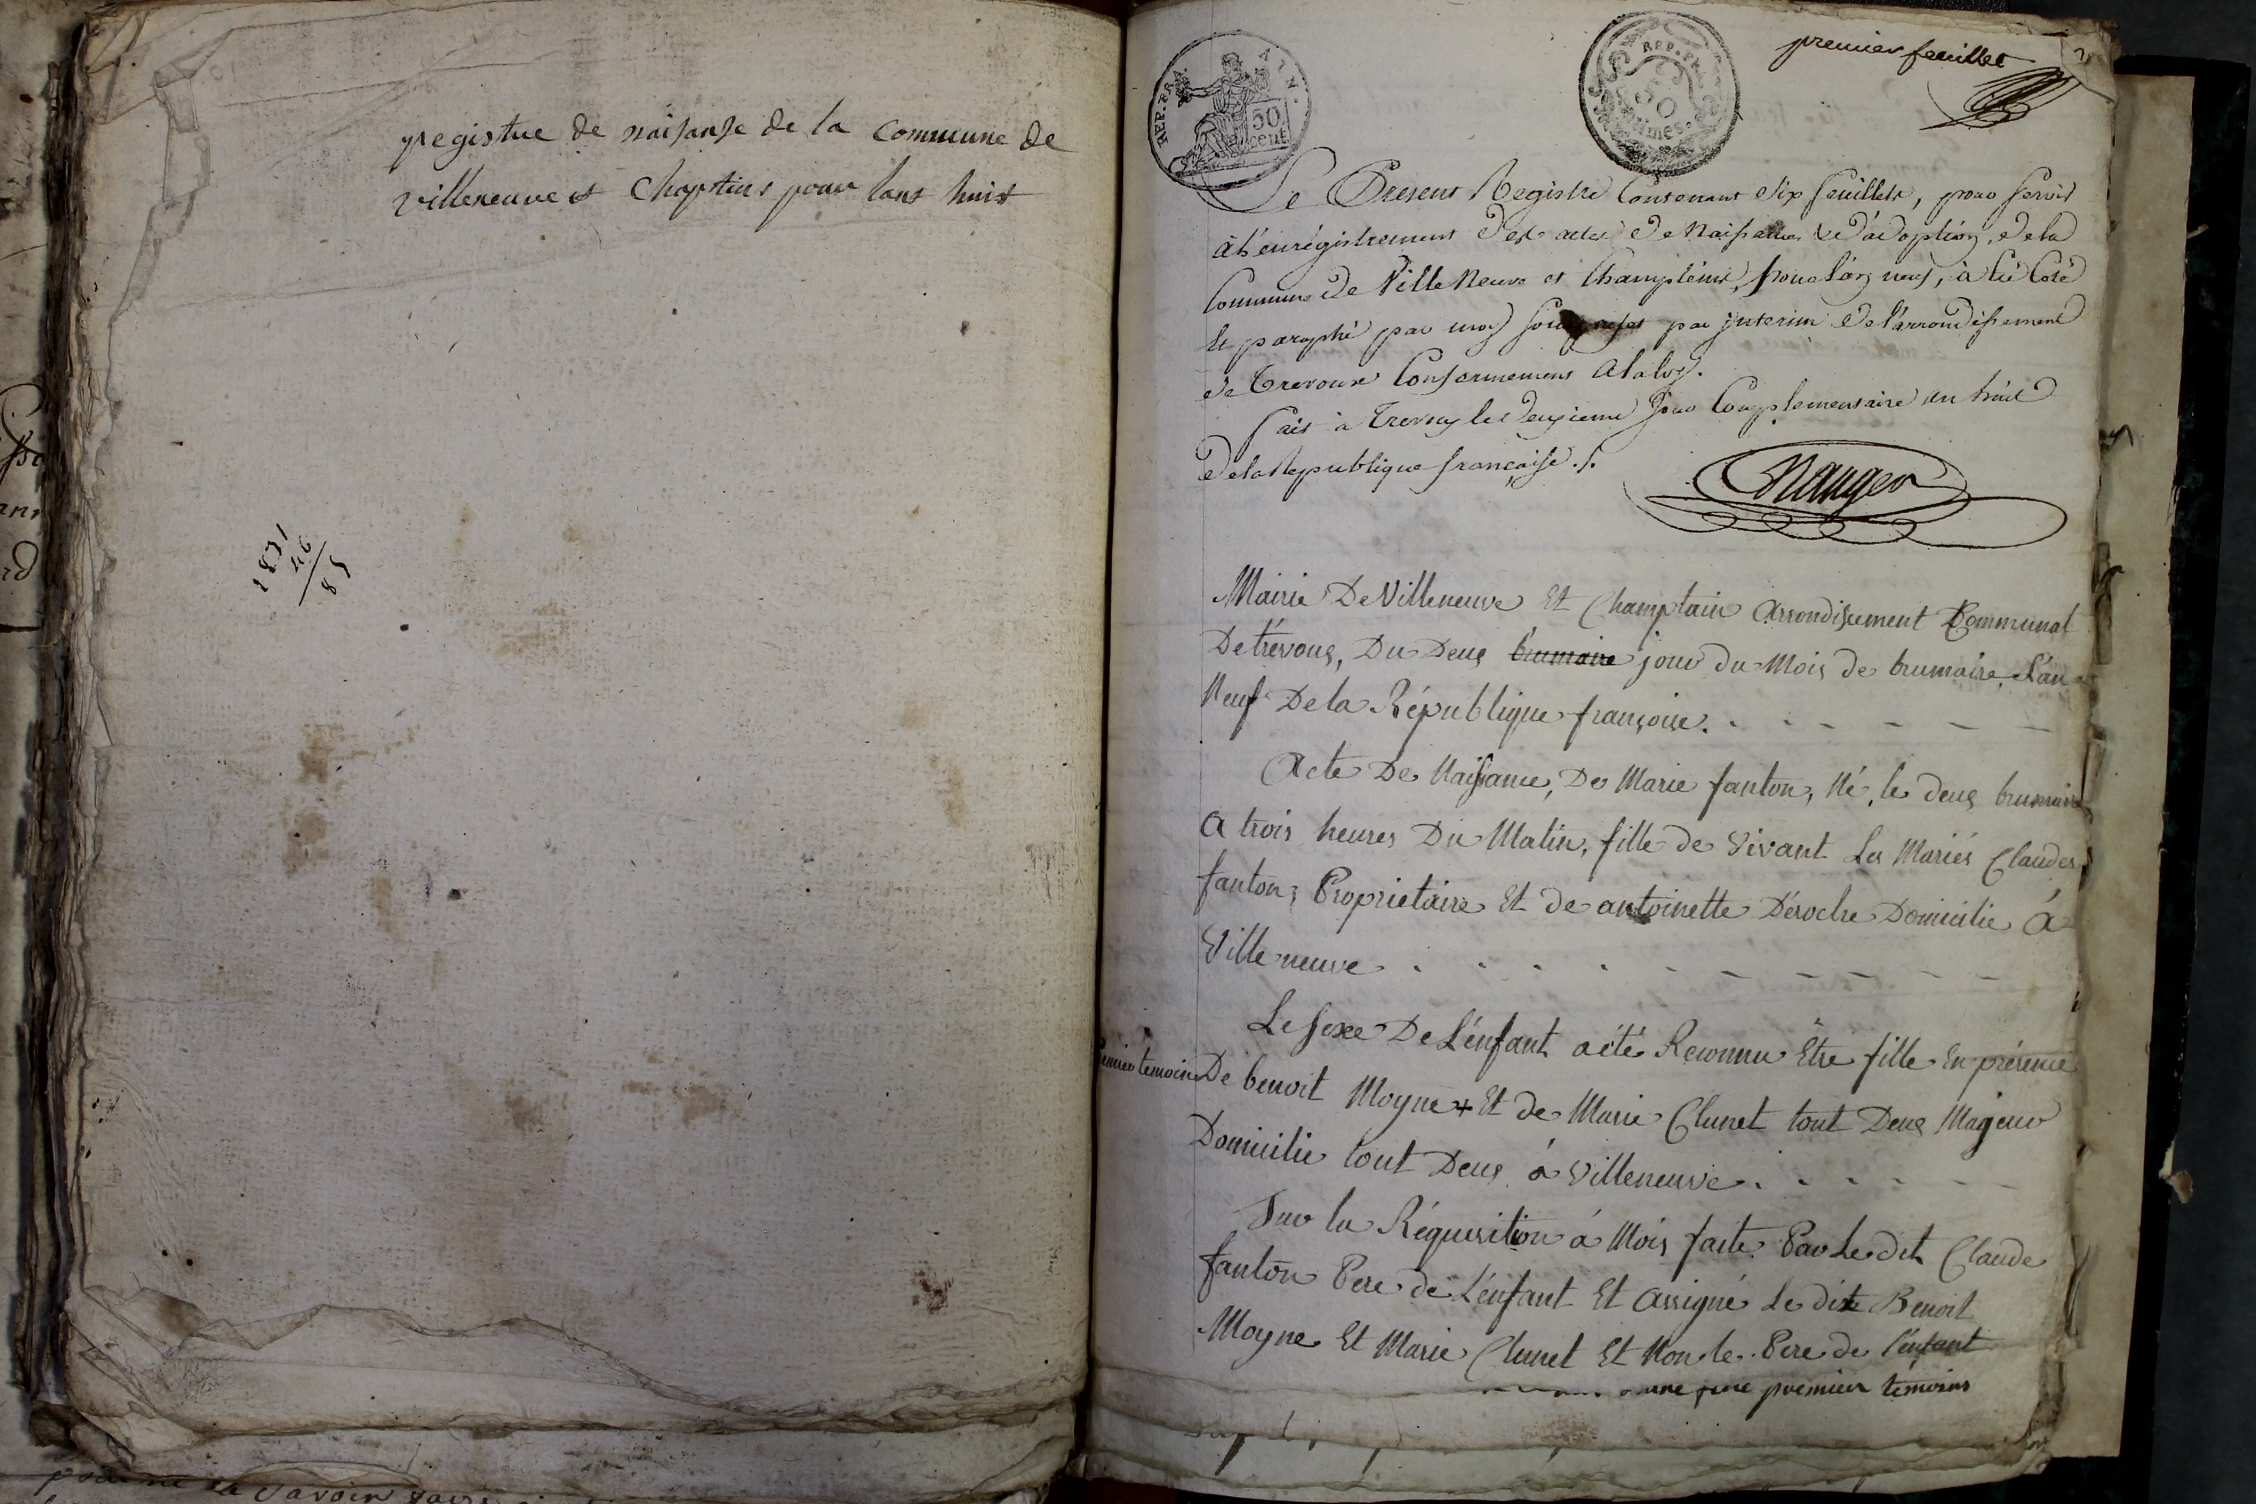 registre de naisanse de la Commune de
villeneuve et Chaptins pour lant huit
1831
46
85
premier feuillet
REP. FRA.
50
cent
REP. FR
50
Le Present Registre Contenant Six feuillets, pour Servir
à L'enrégistrement des actes de Naissances & d'adoption, de la
Commune de Ville Neuve et Champteins, pour l'an neuf, à été Coté
Et paraphé par moy par interim de l'arrondissement
de Trevoux Conformement A la loy.
fait à Trevoux le deuxieme Jour Complementaire an huit
de la Republique française ./.
Mauger
Mairie De Villeneuve Et Champtain Arrondissement Communal
De trévoux, Du Deux brumaire jour du Mois de brumaire L'an
Neuf De la République françoise.
Acte De Naissance, De Marie fanton, Né, le deux brumaire
A trois heures Du Matin, fille de Vivant Les Mariés Claudes
fanton, Proprietaire Et de antoinette Déroche Domicilie á
Ville neuve
Le sexe De L'énfant a été Reconnu Etre fille En présence
premier temoin De benoit Moyne + Et de Marie Clunet tout Deux Majeur
Domicilie tout Deux á Villeneuve.
Sur la Réquisition á Mois faite Par Le dit Claude
fanton Pere de L'énfant Et assigné Le dite Benoit
Moyne Et Marie Clunet Et Non le Pere de l'énfant
premier temoins